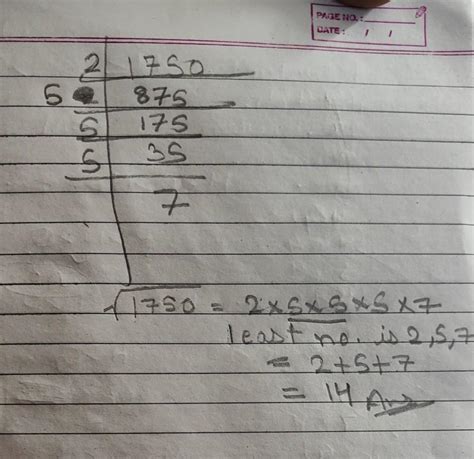 PAGE NO.:
DATE: / /
2 | 1750
5 | 875
5 | 175
5 | 35
7
√1750 = 2×5×5×5×7
least no. is 2,5,7
= 2+5+7
= 14 Ans